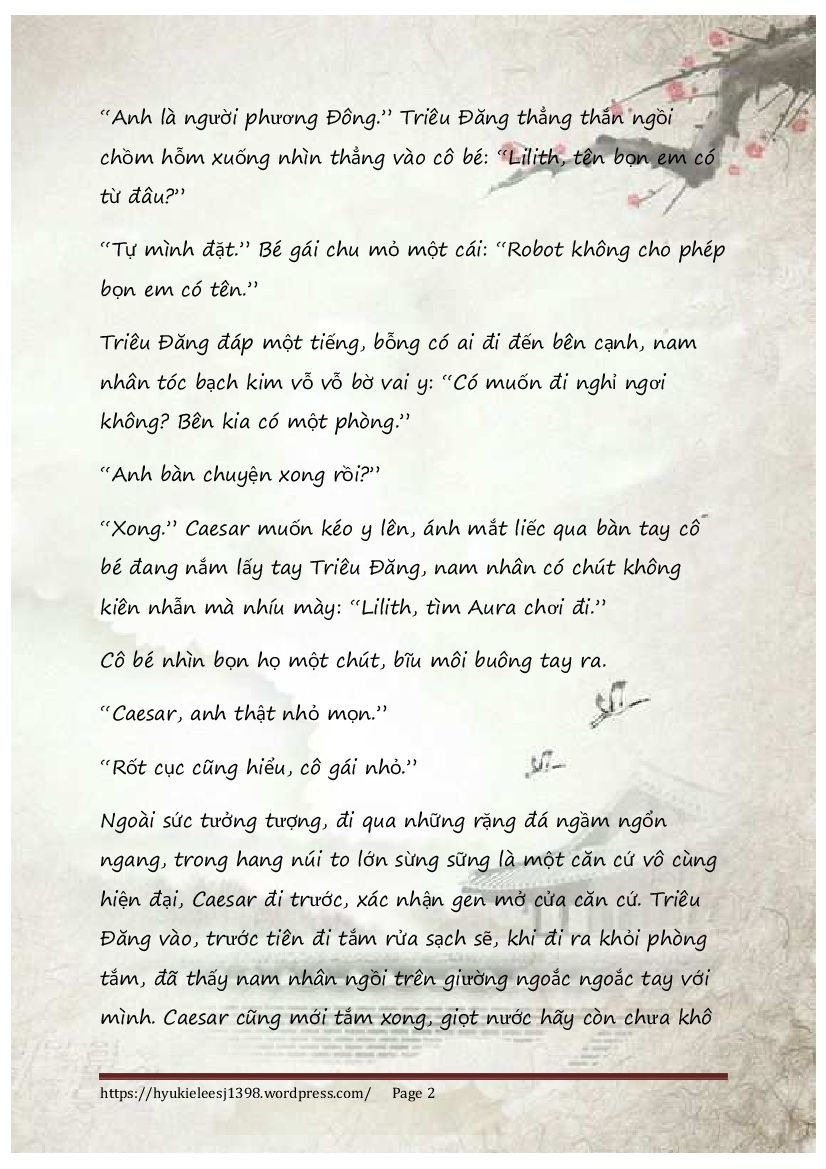 “Anh là người phương Đông.” Triêu Đăng thẳng thắn ngồi
chồm hỗm xuống nhìn thẳng vào cô bé: “Lilith, tên bọn em có
từ đâu?”
“Tự mình đặt.” Bé gái chu mỏ một cái: “Robot không cho phép
bọn em có tên.”
Triêu Đăng đáp một tiếng, bỗng có ai đi đến bên cạnh, nam
nhân tóc bạch kim vỗ vỗ bờ vai y: “Có muốn đi nghỉ ngơi
không? Bên kia có một phòng.”
“Anh bàn chuyện xong rồi?”
“Xong.” Caesar muốn kéo y lên, ánh mắt liếc qua bàn tay cô
bé đang nắm lấy tay Triêu Đăng, nam nhân có chút không
kiên nhẫn mà nhíu mày: “Lilith, tìm Aura chơi đi.”
Cô bé nhìn bọn họ một chút, bĩu môi buông tay ra.
“Caesar, anh thật nhỏ mọn.”
“Rốt cục cũng hiểu, cô gái nhỏ.”
Ngoài sức tưởng tượng, đi qua những rặng đá ngầm ngổn
ngang, trong hang núi to lớn sừng sững là một căn cứ vô cùng
hiện đại, Caesar đi trước, xác nhận gen mở cửa căn cứ. Triêu
Đăng vào, trước tiên đi tắm rửa sạch sẽ, khi đi ra khỏi phòng
tắm, đã thấy nam nhân ngồi trên giường ngoắc ngoắc tay với
mình. Caesar cũng mới tắm xong, giọt nước hãy còn chưa khô
https://hyukieleesj1398.wordpress.com/ Page 2